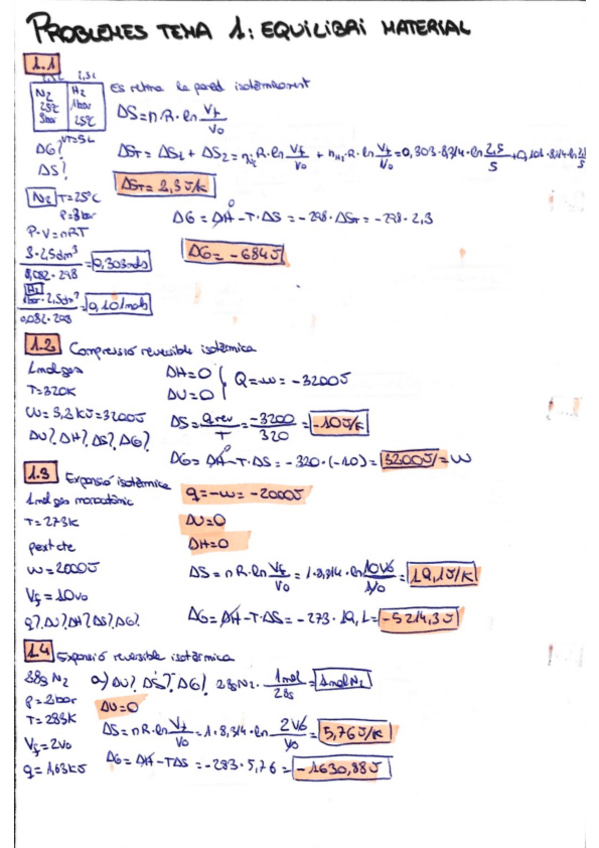 PROBLEMES TEMA 1: EQUILIBRI MATERIAL
1.1
N2 H2
25ºC 1bar
3bar 25ºC
Es retira la pared isotèrmicament
ΔS=n·R·ln Vf/V0
VT=5L
ΔG?
ΔS?
ΔST = ΔS1 + ΔS2 = n·R·ln Vf/V0 + nH2·R·ln Vf/V0 = 0,303·8,314·ln 2,5/5 + 0,101·8,14·ln 2,5/5
ΔST = 2,3 J/K
N2 T=25ºC
P=3bar
P·V=nRT
ΔG = ΔH - T·ΔS = -298·ΔST = -298·2,3
0
ΔG = -684J
3·2,5dm³/0,082·298 = 0,303mols
H2
1bar·2,5dm³/0,082·298 = 0,101mols
1.2 Compressió reversible isotèrmica
1mol gas
T=320K
W=3,2KJ=3200J
ΔU?, ΔH?, ΔS?, ΔG?
ΔH=0
ΔU=0
Q=-w= -3200J
ΔS = Qrev/T = -3200/320 = -10J/K
ΔG = ΔH - T·ΔS = -320·(-10) = 3200J = W
0
1.3 Expansió isotèrmica
1mol gas monoatòmic
T=273K
pext cte
W=2000J
Vf=10V0
q?, ΔU?, ΔH?, ΔS?, ΔG?
q=-w= -2000J
ΔU=0
ΔH=0
ΔS = nR·ln Vf/V0 = 1·8,314·ln 10V0/V0 = 19,1J/K
ΔG = ΔH - T·ΔS = -273·19,1 = -5214,3J
1.4 Expansió reversible isotèrmica
28g N2
P=2bar
T=283K
Vf=2V0
q=1,63KJ
a) ΔU?, ΔS?, ΔG? 28gN2·1mol/28g = 1molN2
ΔU=0
ΔS = nR·ln Vf/V0 = 1·8,314·ln 2V0/V0 = 5,76J/K
ΔG = ΔH - TΔS = -283·5,76 = -1630,88J